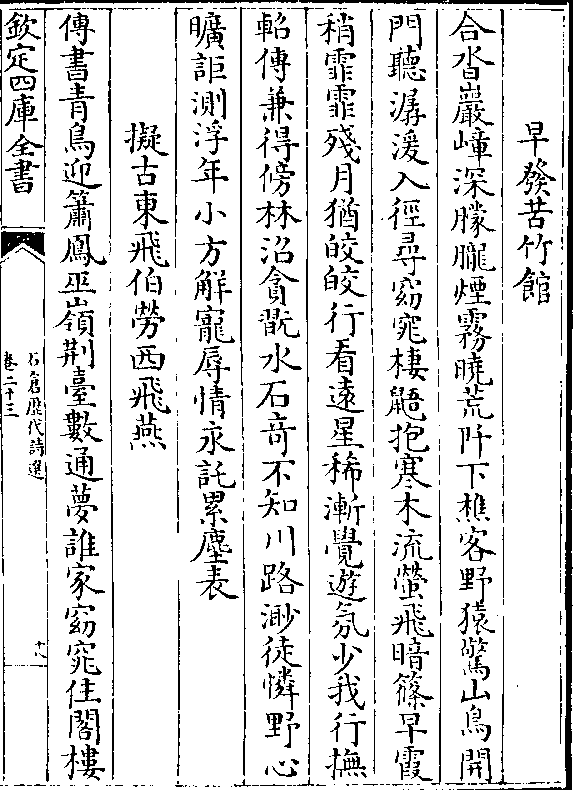 早發苦竹館
合沓巖嶂深朦朧煙霧曉荒阡下樵客野猿驚山鳥開
門聽潺湲入徑尋窈窕棲鼯抱寒木流螢飛暗篠早霞
稍霏霏殘月猶皎皎行看遠星稀漸覺遊氛少我行撫
軺傳兼得傍林沼貪翫水石奇不知川路渺徒憐野心
曠詎測浮年小方解寵辱情永託累塵表
擬古東飛伯勞西飛燕
傳書青鳥迎簫鳳巫嶺荆臺數通夢誰家窈窕住閣樓
欽定四庫全書
石倉歴代詩選
卷二十三
十八